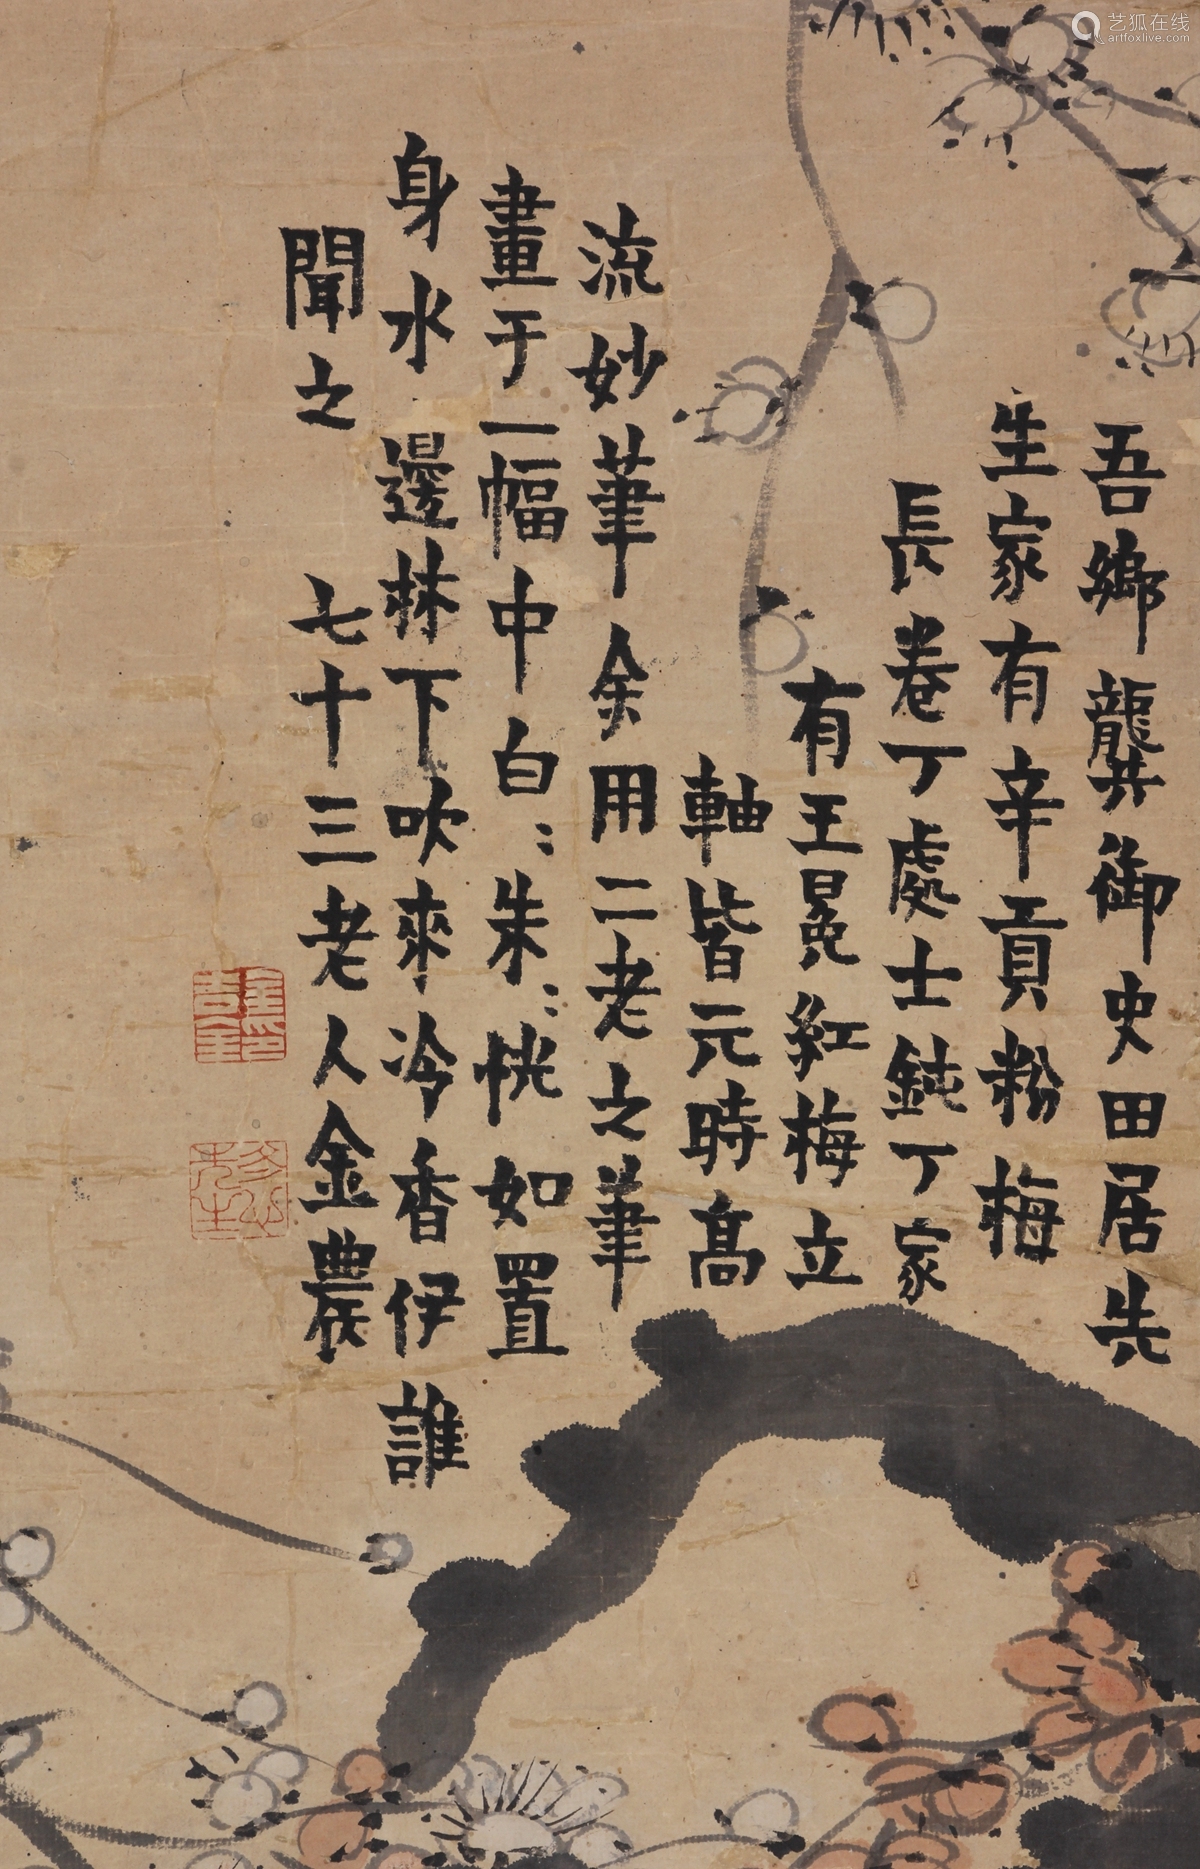 吾鄉龔御史田居先
生家有辛貢粉梅
長卷丁處士鈍丁家
有王冕紅梅立
軸皆元時高
流妙筆余用二老之筆
畫于一幅中白:朱:恍如置
身水邊林下吹來冷香伊誰
聞之 七十三老人金農
艺狐在线
artfoxlive.com